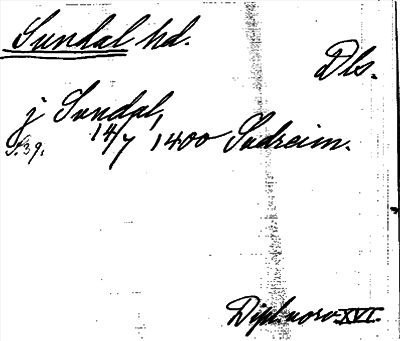 Sundal hd.
Dls.
j Sundal,
14/7 1400 Sudreim.
S. 39.
Dipl. norv. XVI.